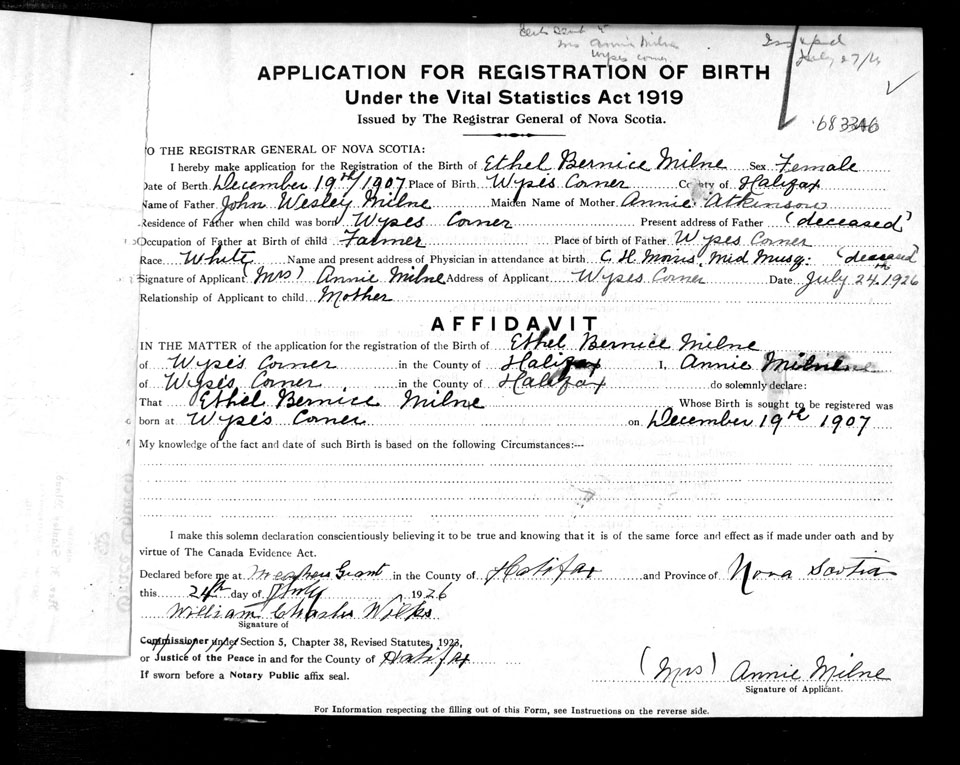 Mrs Annie Milne
Wyses Corner
APPLICATION FOR REGISTRATION OF BIRTH
Under the Vital Statistics Act 1919
Issued by The Registrar General of Nova Scotia.
TO THE REGISTRAR GENERAL OF NOVA SCOTIA:
I hereby make application for the Registration of the Birth of Ethel Bernice Milne Sex Female
Date of Berth December 19th/1907 Place of Birth Wyse's Corner County of Halifax
Name of Father John Wesley Milne Maiden Name of Mother Annie Atkinson
Residence of Father when child was born Wyses Corner Present address of Father (deceased)
Occupation of Father at Birth of child Farmer Place of birth of Father Wyses Corner
Race White Name and present address of Physician in attendance at birth C H Morris, Mid Musq: (deceased)
Signature of Applicant (Mrs) Annie Milne Address of Applicant Wyses Corner Date July 24th 1926
Relationship of Applicant to child Mother
AFFIDAVIT
IN THE MATTER of the application for the registration of Birth of Ethel Bernice Milne
of Wyse's Corner in the County of Halifax I, Annie Milne
of Wyse's Corner in the County of Halifax do solemnly declare:
That Ethel Bernice Milne Whose Birth is sought to be registered was
born at Wyse's Corner on December 19th 1907
My knowledge of the fact and date of such Birth is based on the following Circumstances:--
I make this solemn declaration conscientiously believing it to be true and knowing that it is of the same force and effect as if made under oath and by
virtue of The Canada Evidence Act.
Declared before me at Meaghers Grant in the County of Halifax and Province of Nova Scotia
this 24th day of July 1926
William Charles Wilks
Signature of
Commissioner under Section 5, Chapter 38, Revised Statutes, 1923,
or Justice of the Peace in and for the County of Halifax
If sworn before a Notary Public affix seal.
(Mrs) Annie Milne
Signature of Applicant.
For Information respecting the filling out of this Form, see Instructions on the reverse side.